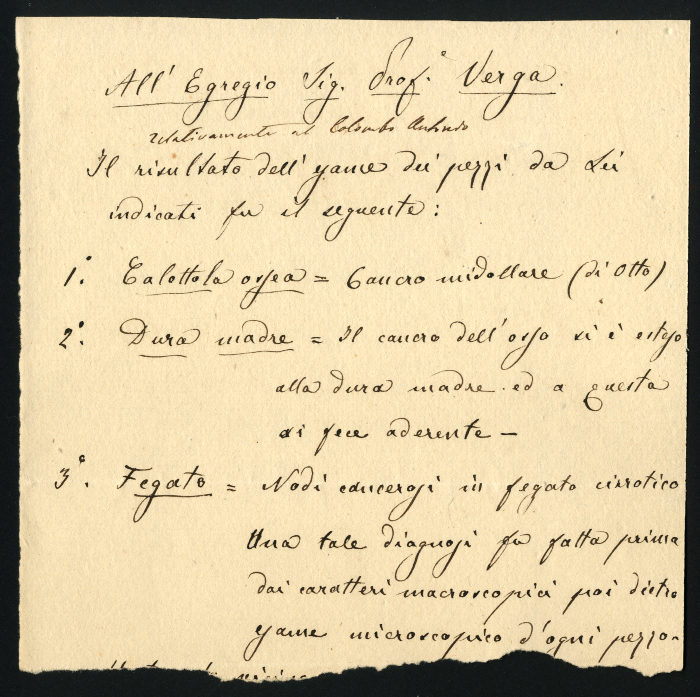 All' Egregio Sig. Prof.e Verga.
relativamente al Colombo Antonio
Il risultato dell' esame dei pezzi da Lei
indicati fu il seguente:
1.° Calottola ossea = Cancro midollare (di Otto)
2.° Dura madre = Il cancro dell'osso si è esteso
alla dura madre ed a questa
si fece aderente -
3.° Fegato = Nodi cancerosi in fegato cirrotico
Una tale diagnosi fu fatta prima
dai caratteri macroscopici poi dietro
esame microscopico d'ogni pezzo-